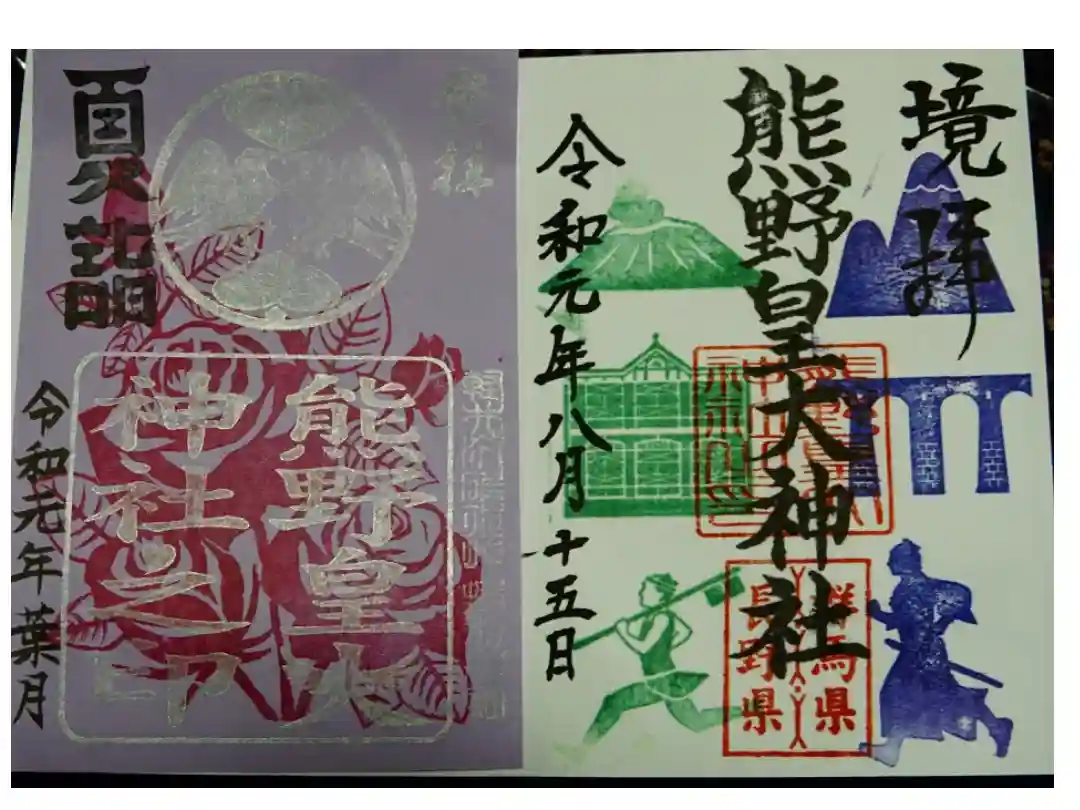 境拝
熊野皇大神社
群馬県
長野県
令和元年八月十五日
夏詣
熊野皇大
神社之印
令和元年葉月